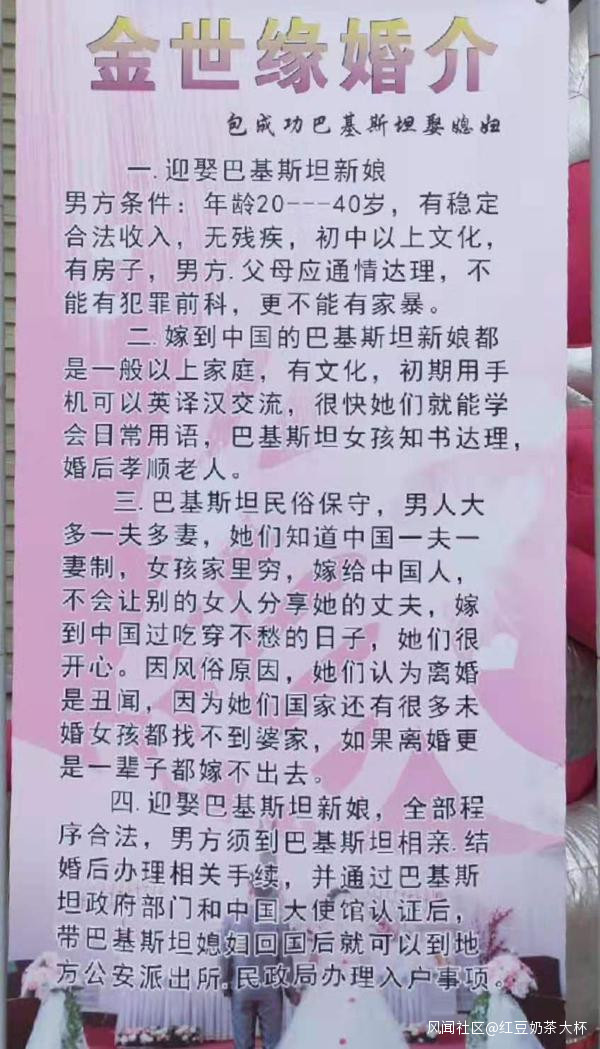 金世缘婚介
包成功巴基斯坦娶媳妇
一.迎娶巴基斯坦新娘
男方条件：年龄20---40岁，有稳定
合法收入，无残疾，初中以上文化，
有房子，男方.父母应通情达理，不
能有犯罪前科，更不能有家暴。
二.嫁到中国的巴基斯坦新娘都
是一般以上家庭，有文化，初期用手
机可以英译汉交流，很快她们就能学
会日常用语，巴基斯坦女孩知书达理，
婚后孝顺老人。
三.巴基斯坦民俗保守，男人大
多一夫多妻，她们知道中国一夫一
妻制，女孩家里穷，嫁给中国人，
不会让别的女人分享她的丈夫，嫁
到中国过吃穿不愁的日子，她们很
开心。因风俗原因，她们认为离婚
是丑闻，因为她们国家还有很多未
婚女孩都找不到婆家，如果离婚更
是一辈子都嫁不出去。
四.迎娶巴基斯坦新娘，全部程
序合法，男方须到巴基斯坦相亲.结
婚后办理相关手续，并通过巴基斯
坦政府部门和中国大使馆认证后，
带巴基斯坦媳妇回国后就可以到地
方公安派出所.民政局办理入户事项。
风闻社区@红豆奶茶大杯